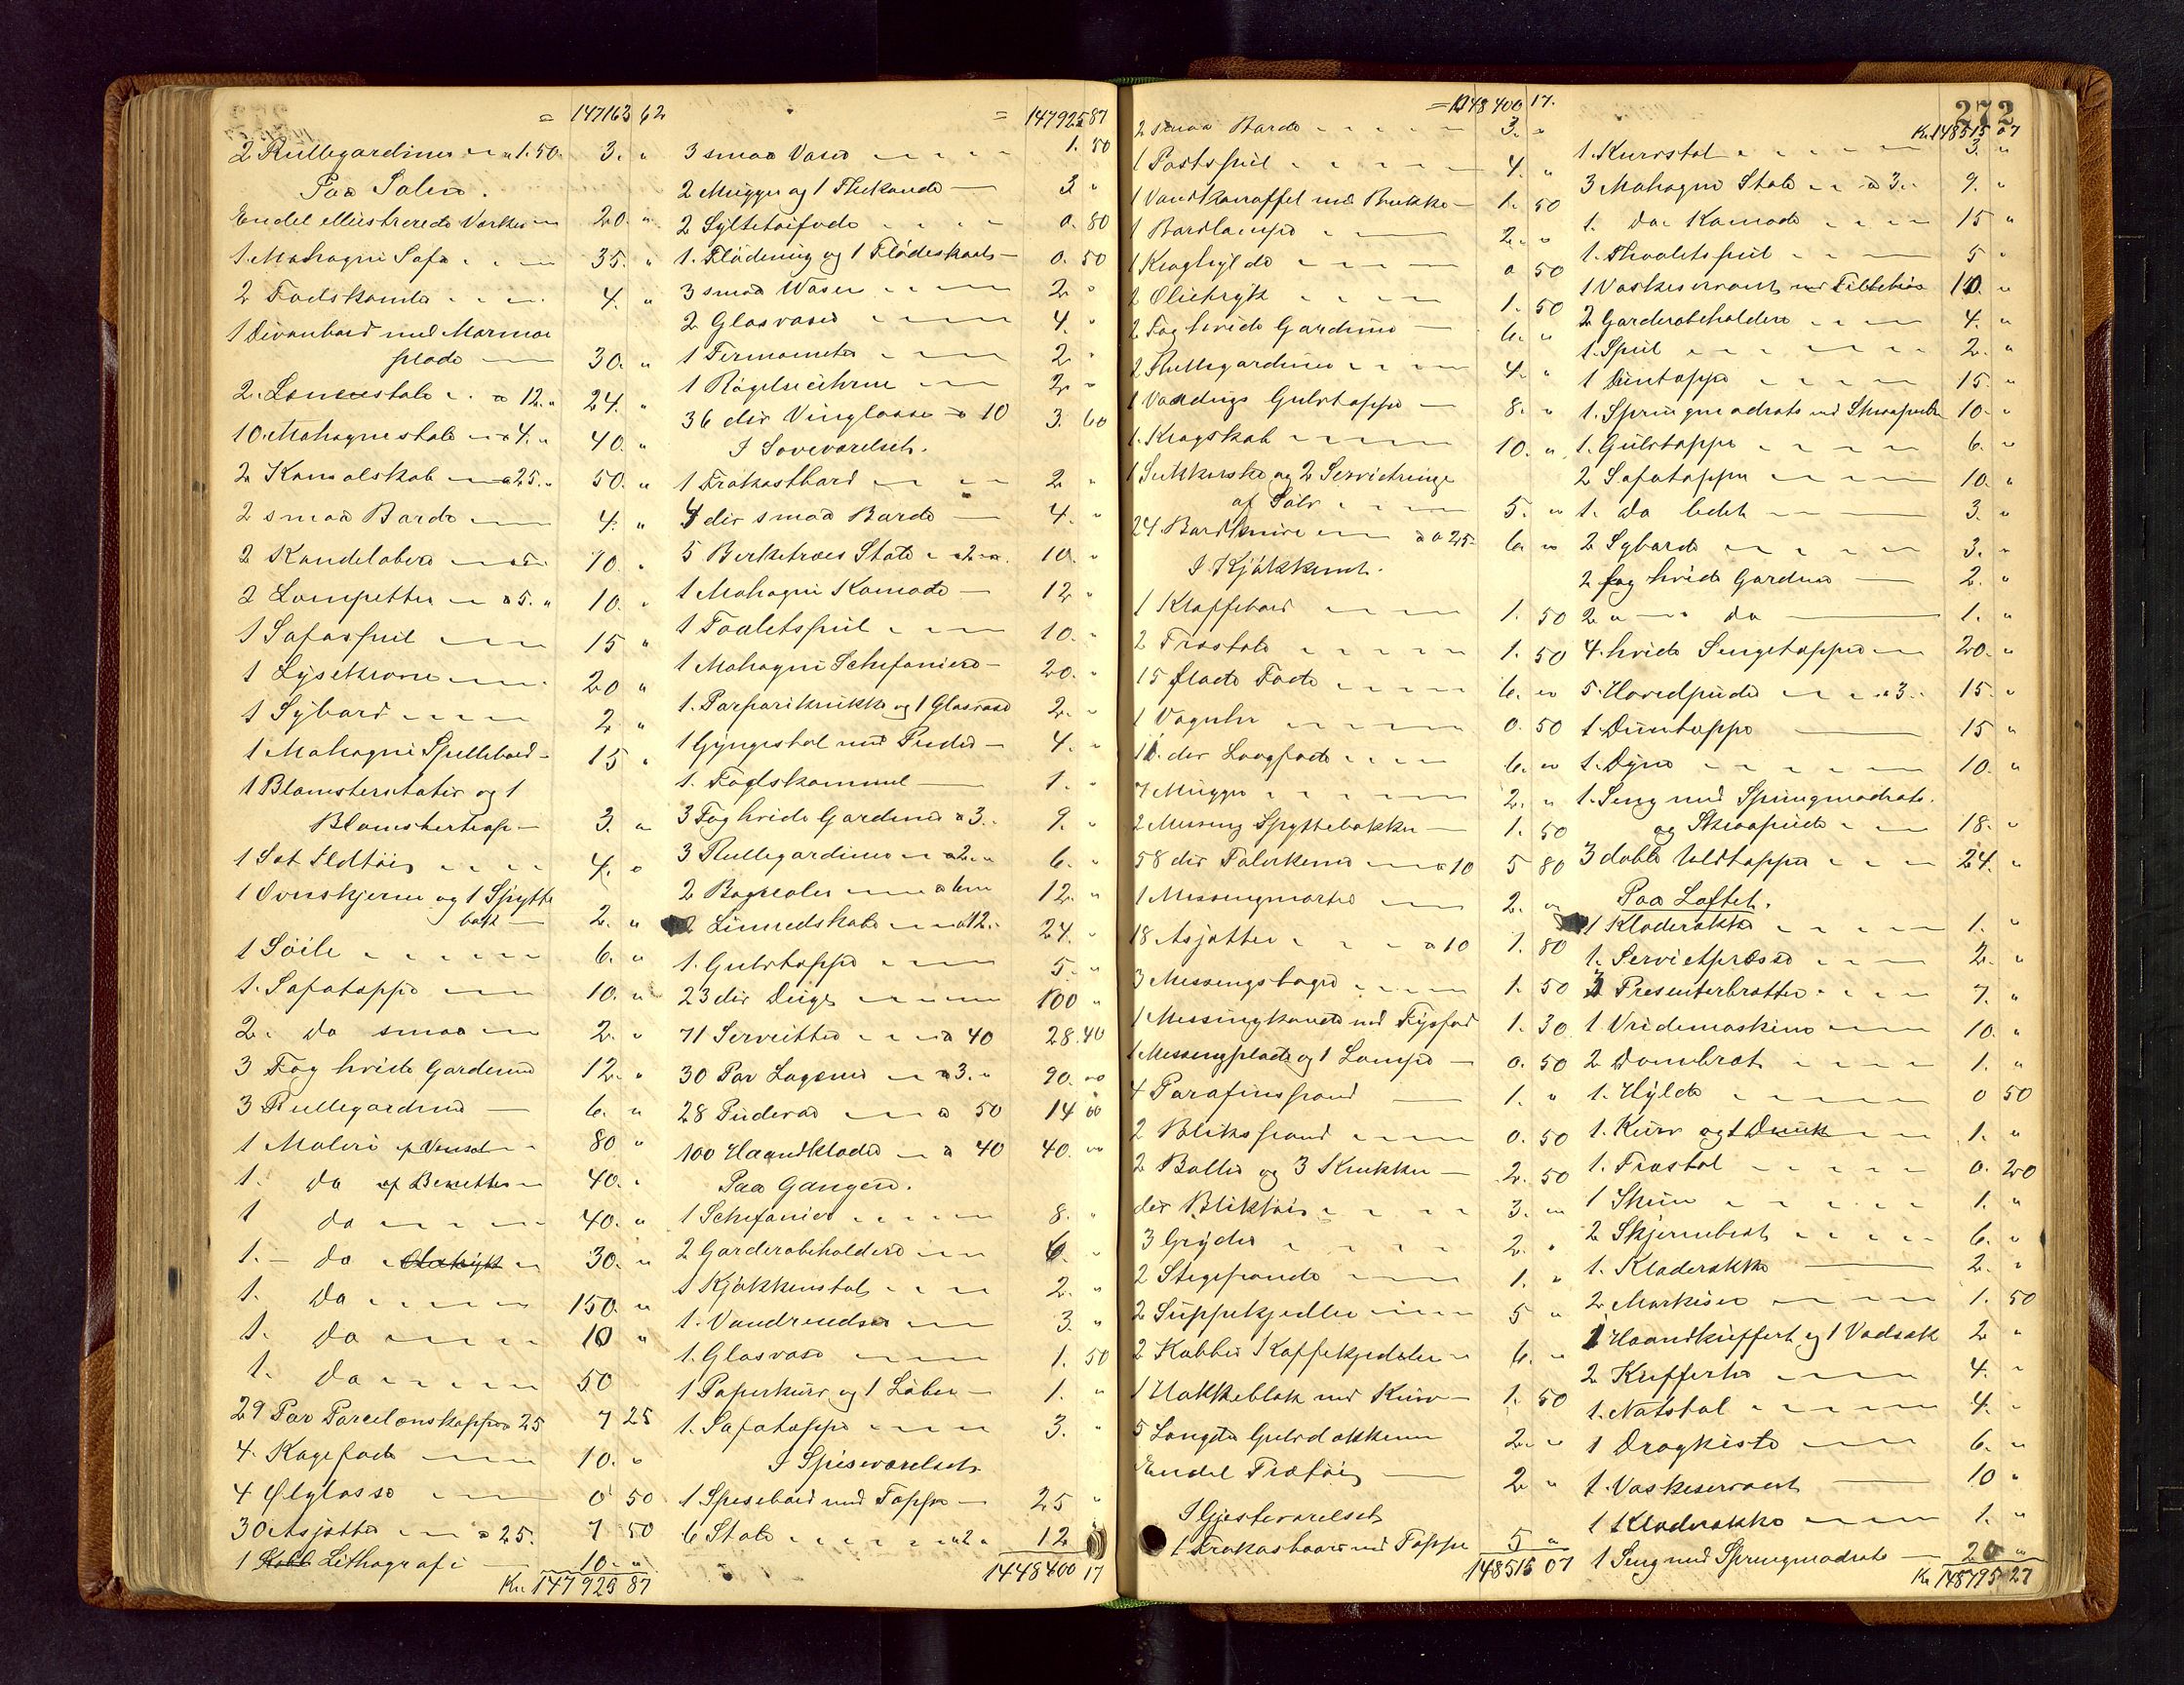 = 147163 62
2 Rullegardiner a 1.50. 3. "
Paa Salen.
Endel illustrerede Værker 20. "
1. Mahogni Sofa 35. "
2 Fodskamler 4. "
1 Divanbord med Marmor
plade 30. "
2. Lænestole a 12. " 24. "
10. Mahognistole a 4. " 40. "
2 Konsolskab a 25. " 50. "
2 smaa Borde 4. "
2 Kandelabere a 5. 10. "
2 Lampetter a 5. " 10. "
1 Sofaspeil 15 "
1 Lysekrone 20 "
1 Sybord 2. "
1 Mahogni Spillebord 15 "
1 Blomsterstativ og 1
Blomstertrap 3. "
1 Sæt Ildtøi 4. "
1 Ovnskjerm og 1 Spytte
bak 2. "
1 Søile 6. "
1. Sofatæppe 10. "
2. do smaa 2. "
3 Fag hvide Gardiner 12. "
3 Rullegardiner 6. "
1 Maleri af 80 "
1. do af Bennetter 40. "
1 do 40. "
1. do Oletryk 30. "
1. do 150. "
1. do 10 "
1. do 50
29 Par Porcelænskopper a 25 7 25
4. Kagefade 10. "
4 Ølglasse 0 50
30 Asjetter a 25. 7 50
1 Lithografi 10. "
Kr. 147925 87
= 147925 87
3 smaa Vaser 1. 50
2 Mugger og 1 Thekande 3 "
2 Syltetøifade 0. 80
1. Flødemug og 1 Flødeskaal 0. 50
3 smaa Vaser 2 "
2 Glasvaser 4. "
1 Termometer 2 "
1 2. "
36 div Vinglasse a 10 3. 60
I Soveværelset.
1 Frokostbord 2 "
4 div smaa Borde 4. "
5 Birketræes Stole a 2. 10. "
1 Mahogni Komode 12 "
1 Toaletspeil 10. "
1 Mahogni Schefoniere 20. "
1. Parfarikrukke og 1 Glasvase 2. "
1 Gyngestol med Puder 4. "
1. Fodskammel 1. "
3 Fag hvide Gardiner a 3. 9. "
3 Rullegardiner a 2. " 6. "
2 Bogreoler a 6. 12. "
2 Linnedskabe a 12. 24. "
1. Gulvtæppe 5. "
23 div Duge 100 "
71 Servietter a 40 28. 40
30 Par Lagener a 3. " 90. "
28 Pudevar a 50 14 00
100 Haandklæder a 40 40. "
Paa Gangen.
1 Schefonier 8. "
2 Garderobeholdere 6. "
1 Kjøkkenstol 2. "
1. Vandrendser 3. "
1. Glasvase 1. 50
1 Papirkurv og 1 Løber 1. "
1. Sofatæppe 3. "
I Spiseværelset.
1 Spisebord med Tæppe 25 "
6 Stole a 2. 12 "
1448400 17
= 148400 17.
2 smaa Borde 3. "
1 Postspeil 4. "
1 Vandkaraffel med Brukke 1. 50
1 Bordlampe 2. "
1 Kraghylde 0 50
2 Olietryk 1. 50
2 Fag hvide Gardiner 6. "
2 Rullegardiner 4. "
1 Vaadugs Gulvtæppe 8. "
1. Kragskab 10. "
1 Sukkerske og 2 Servietringe
af Sølv 5. "
24 Bordknive a 25 6. "
I Kjøkkenet.
1 Klaffebord 1. 50
2 Træstole 1. 50
15 flade Fade 6. "
1 Væguhr 0. 50
11. div Laagfade 6. "
7 Mugger 2. "
2 Messing Spyttebakker 1. 50
58 div Talerkener a 10 5 80
1 Messingmorter 2. "
18 Asjetter a 10 1. 80
3 Messingstager 1. 50
1 Messingkande med Fyrfad 1. 30
1 Messingplade og 1 Lampe 0. 50
4 Parafinspand 1. "
2 Blikspand 0. 50
2 Baller og 3 Krukker 2. 50
div Bliktøi 3. "
3 Gryder 2. "
2 Stegepande 1. "
2 Suppekjedler 5 "
2 Kobber Kaffekjedeler 6. "
1 Hakkeblok med Kniv 1. 50
5 Længder Gulvdækken 2. "
Endel Trætøi 2 "
I Gjesteværelset
1 Frokostbord med Tæppe 5 "
148515 07
272
Kr. 148515 07
1. Kurvstol 3. "
3 Mahogni Stole a 3. 9. "
1. do Komode 15 "
1. Thoaletspeil 5 "
1 Vaskeservant med Tilbehør 10. "
2 Garderobeholdere 4. "
1. Speil 2. "
1 Duntæppe 15. "
1. Springmadrats med Skraapude 10. "
1. Gulvtæppe 6. "
2 Sofatæpper 10. "
1. do ledet 3. "
2 Syborde 3. "
2 fag hvide Gardiner 2. "
2 " do 1. "
4. hvide Sengetæpper 20. "
5. Hovedpuder a 3. 15. "
1 Duntæppe 15 "
1. Dyne 10. "
1. Seng med Springmadrats.
og Skraapude 18. "
3 doble Uldtæpper 24. "
Paa Loftet.
1 Klæderække 1. "
1. Servietpresse 2. "
3 Presenterbretter 7. "
1 Vridemaskine 10. "
2 Dambræt 1. "
1. Hylde 0 50
1. Kurv og 1 Dunk 1. "
1. Træstol 0. 20
1 Skrin 1. "
2 Skjermebræt 6. "
1. Klæderække 2. "
2 Markiser 1. 50
1 Haandkuffert og 1 Vadsæk 2 "
2 Kufferter 4. "
1. Natstol 4. "
1 Dragkiste 6. "
1. Vaskeservant 10 "
1 Klæderække 1. "
1 Seng med Springmadrats 20 "
Kr. 148795 27